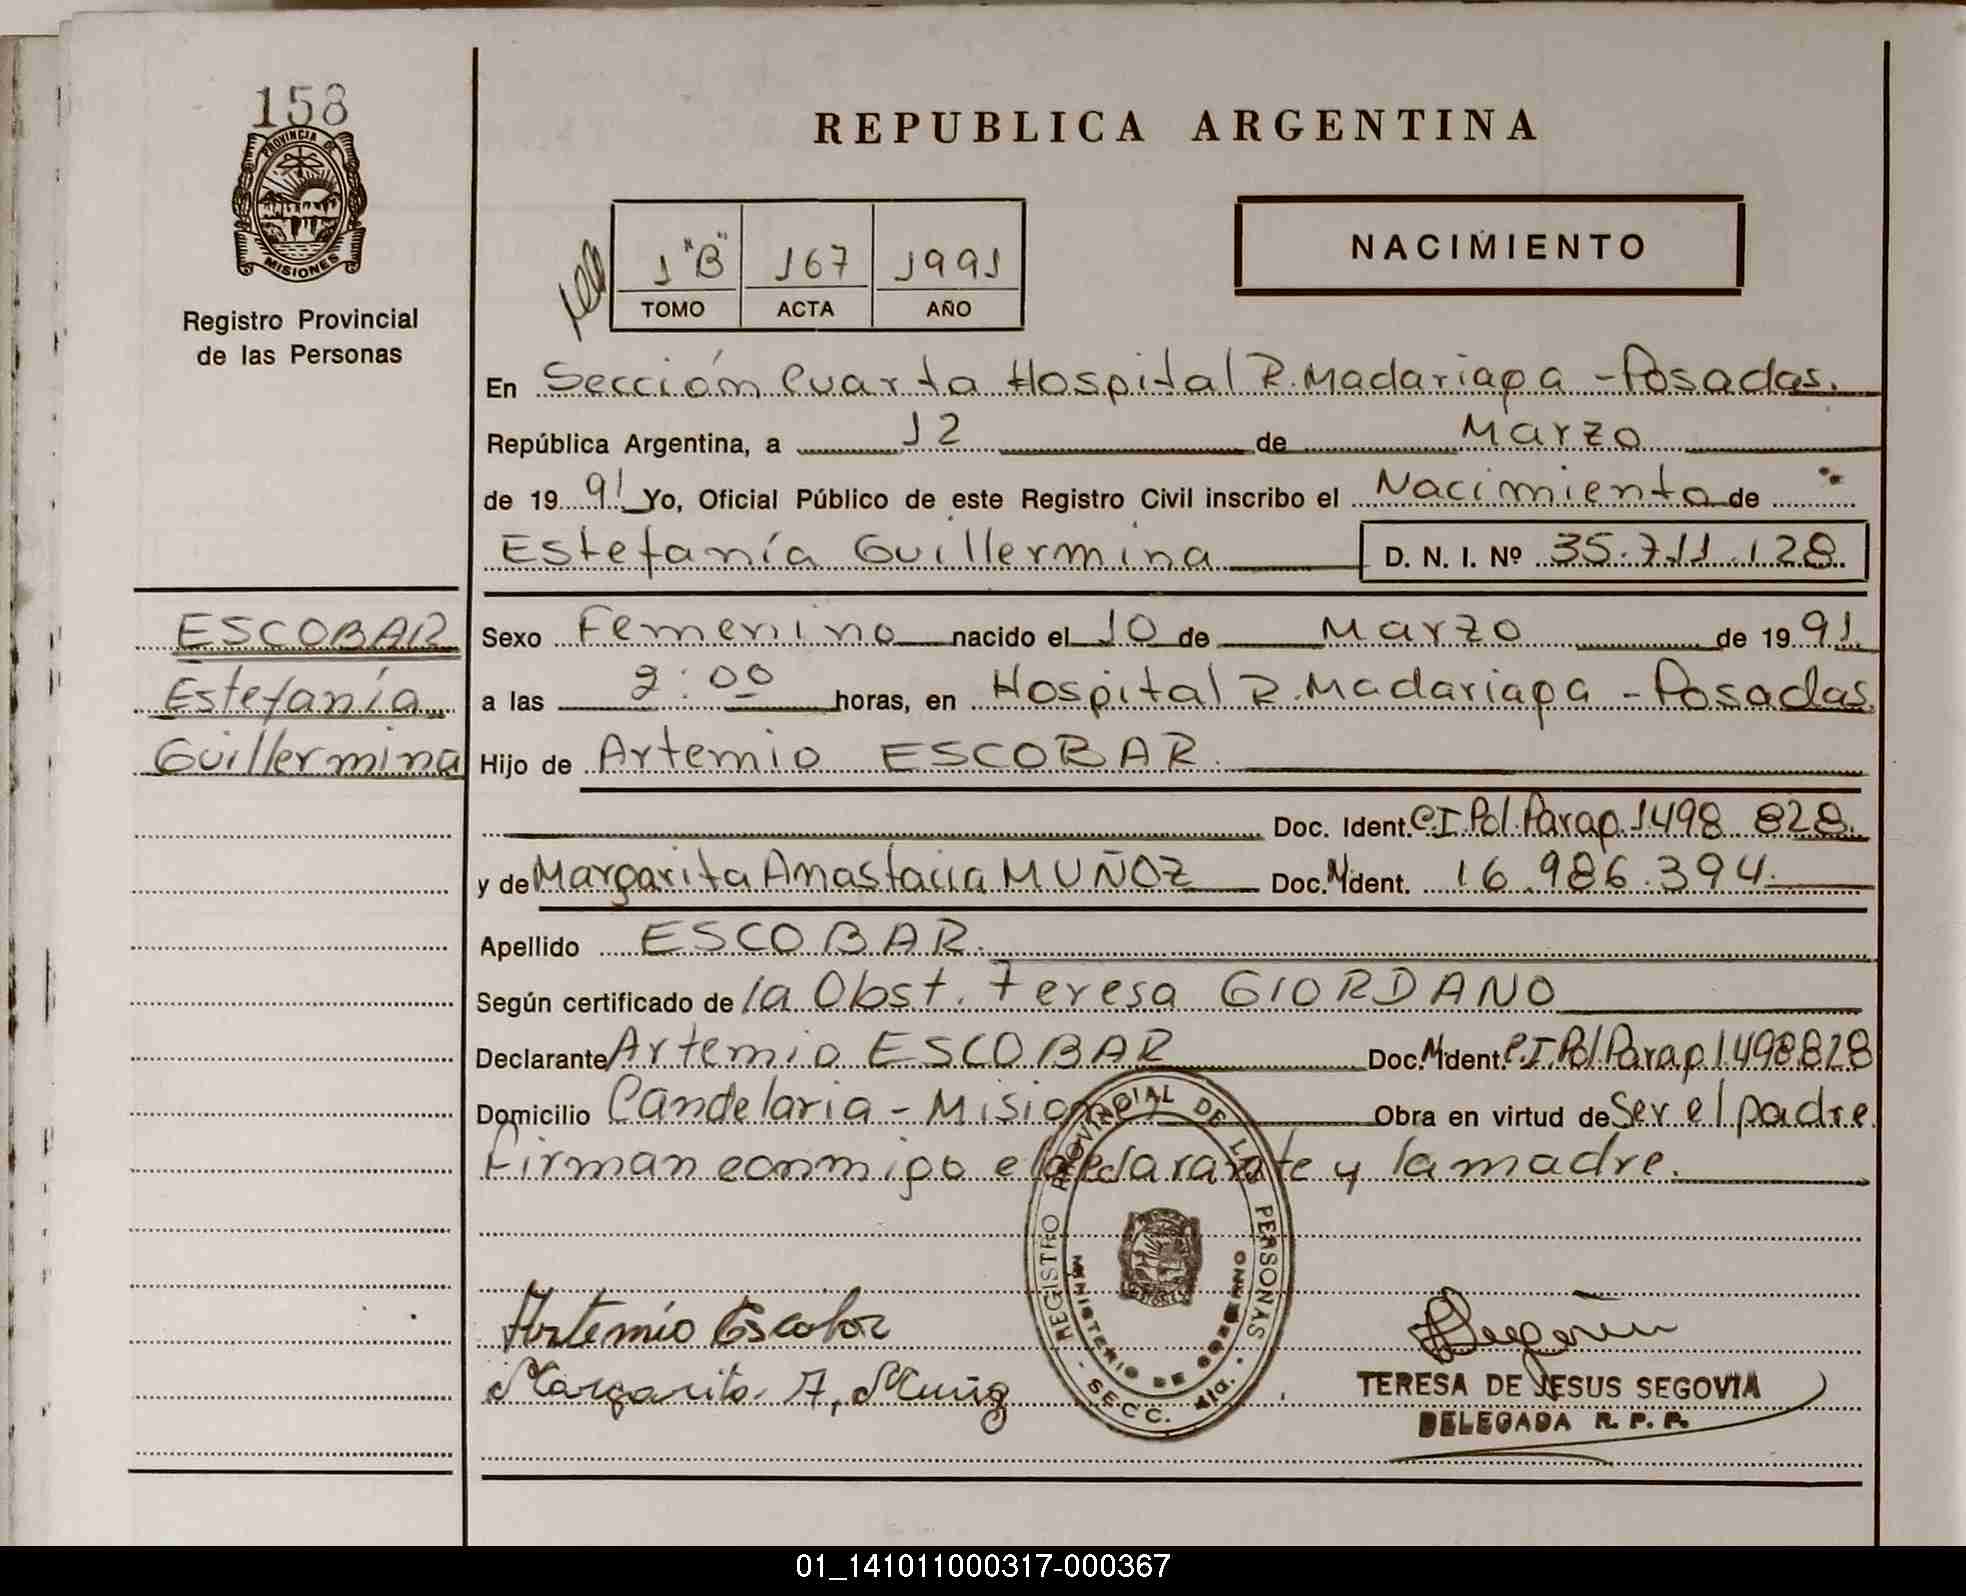 158
PROVINCIA DE
MISIONES
Registro Provincial
de las Personas
REPUBLICA ARGENTINA
1 "B" 167 1991
TOMO ACTA AÑO
NACIMIENTO
En Sección Cuarta Hospital R. Madariaga - Posadas.
República Argentina, a 12 de Marzo
de 19 91 Yo, Oficial Público de este Registro Civil inscribo el Nacimiento de
Estefanía Guillermina D. N. I. Nº 35.711.128
ESCOBAR
Estefanía
Guillermina
Sexo Femenino nacido el 10 de Marzo de 19 91
a las 2:00 horas, en Hospital R. Madariaga - Posadas.
Hijo de Artemio ESCOBAR.
Doc. Ident. C.I. Pol. Parag. 1498 828
y de Margarita Anastacia MUÑOZ Doc. Ident. 16.986.394.
Apellido ESCOBAR.
Según certificado de la Obst. Teresa GIORDANO
Declarante Artemio ESCOBAR Doc. Ident. C.I. Pol. Parag 1.498.828
Domicilio Candelaria - Misiones Obra en virtud de Ser el padre
Firman conmigo el declarante y la madre.
REGISTRO PROVINCIAL DE LAS PERSONAS
MINISTERIO DE GOBIERNO
SECC. 4ta.
Artemio Escobar
Margarita A, Muñoz
TERESA DE JESUS SEGOVIA
DELEGADA R. P. P.
01_141011000317-000367